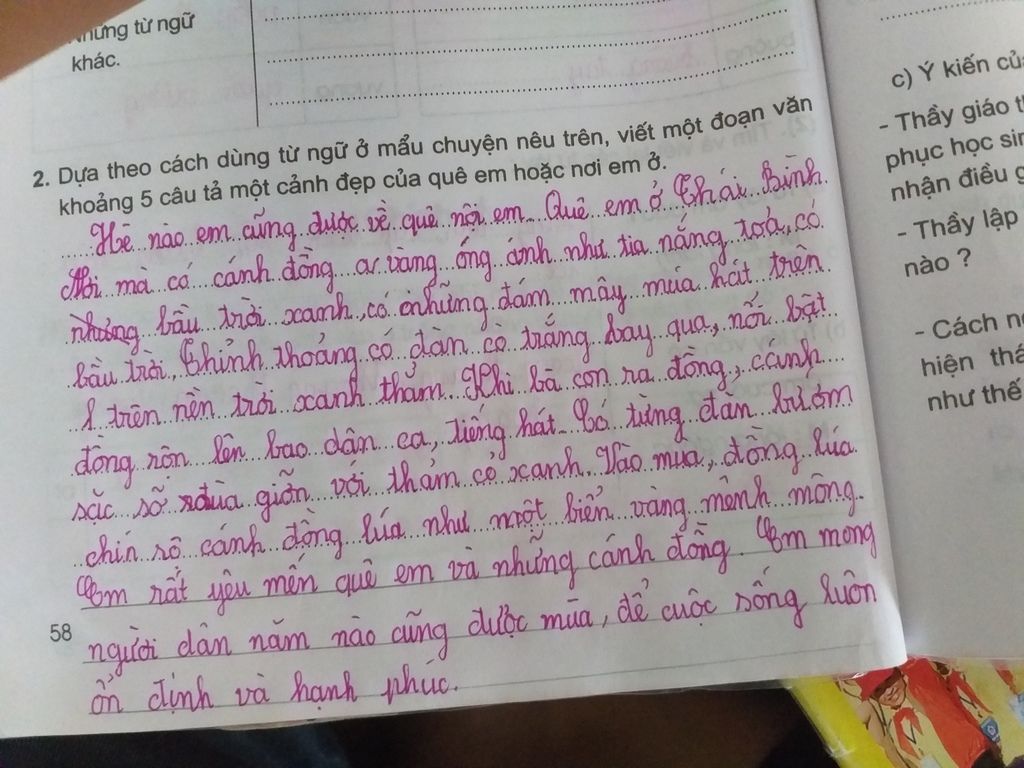 Những từ ngữ
khác.
2. Dựa theo cách dùng từ ngữ ở mẩu chuyện nêu trên, viết một đoạn văn
khoảng 5 câu tả một cảnh đẹp của quê em hoặc nơi em ở.
Hè nào em cũng được về quê nội em. Quê em ở Thái Bình.
Nơi mà có cánh đồng vàng óng ánh như tia nắng toả, có
những bầu trời xanh, có những đám mây múa hát trên
bầu trời, Thỉnh thoảng có đàn cò trắng bay qua, nổi bật
trên nền trời xanh thẳm. Khi bà con ra đồng, cánh
đồng rộn lên bao dân ca, tiếng hát. Có từng đàn bướm
sặc sỡ đùa giỡn với thảm cỏ xanh. Vào mùa, đồng lúa
chín rộ cánh đồng lúa như một biển vàng mênh mông.
Em rất yêu mến quê em và những cánh đồng. Em mong
người dân năm nào cũng được mùa, để cuộc sống luôn
ổn định và hạnh phúc.
58
c) Ý kiến của
- Thầy giáo
phục học sin
nhận điều g
- Thầy lập
nào ?
- Cách n
hiện thá
như thế